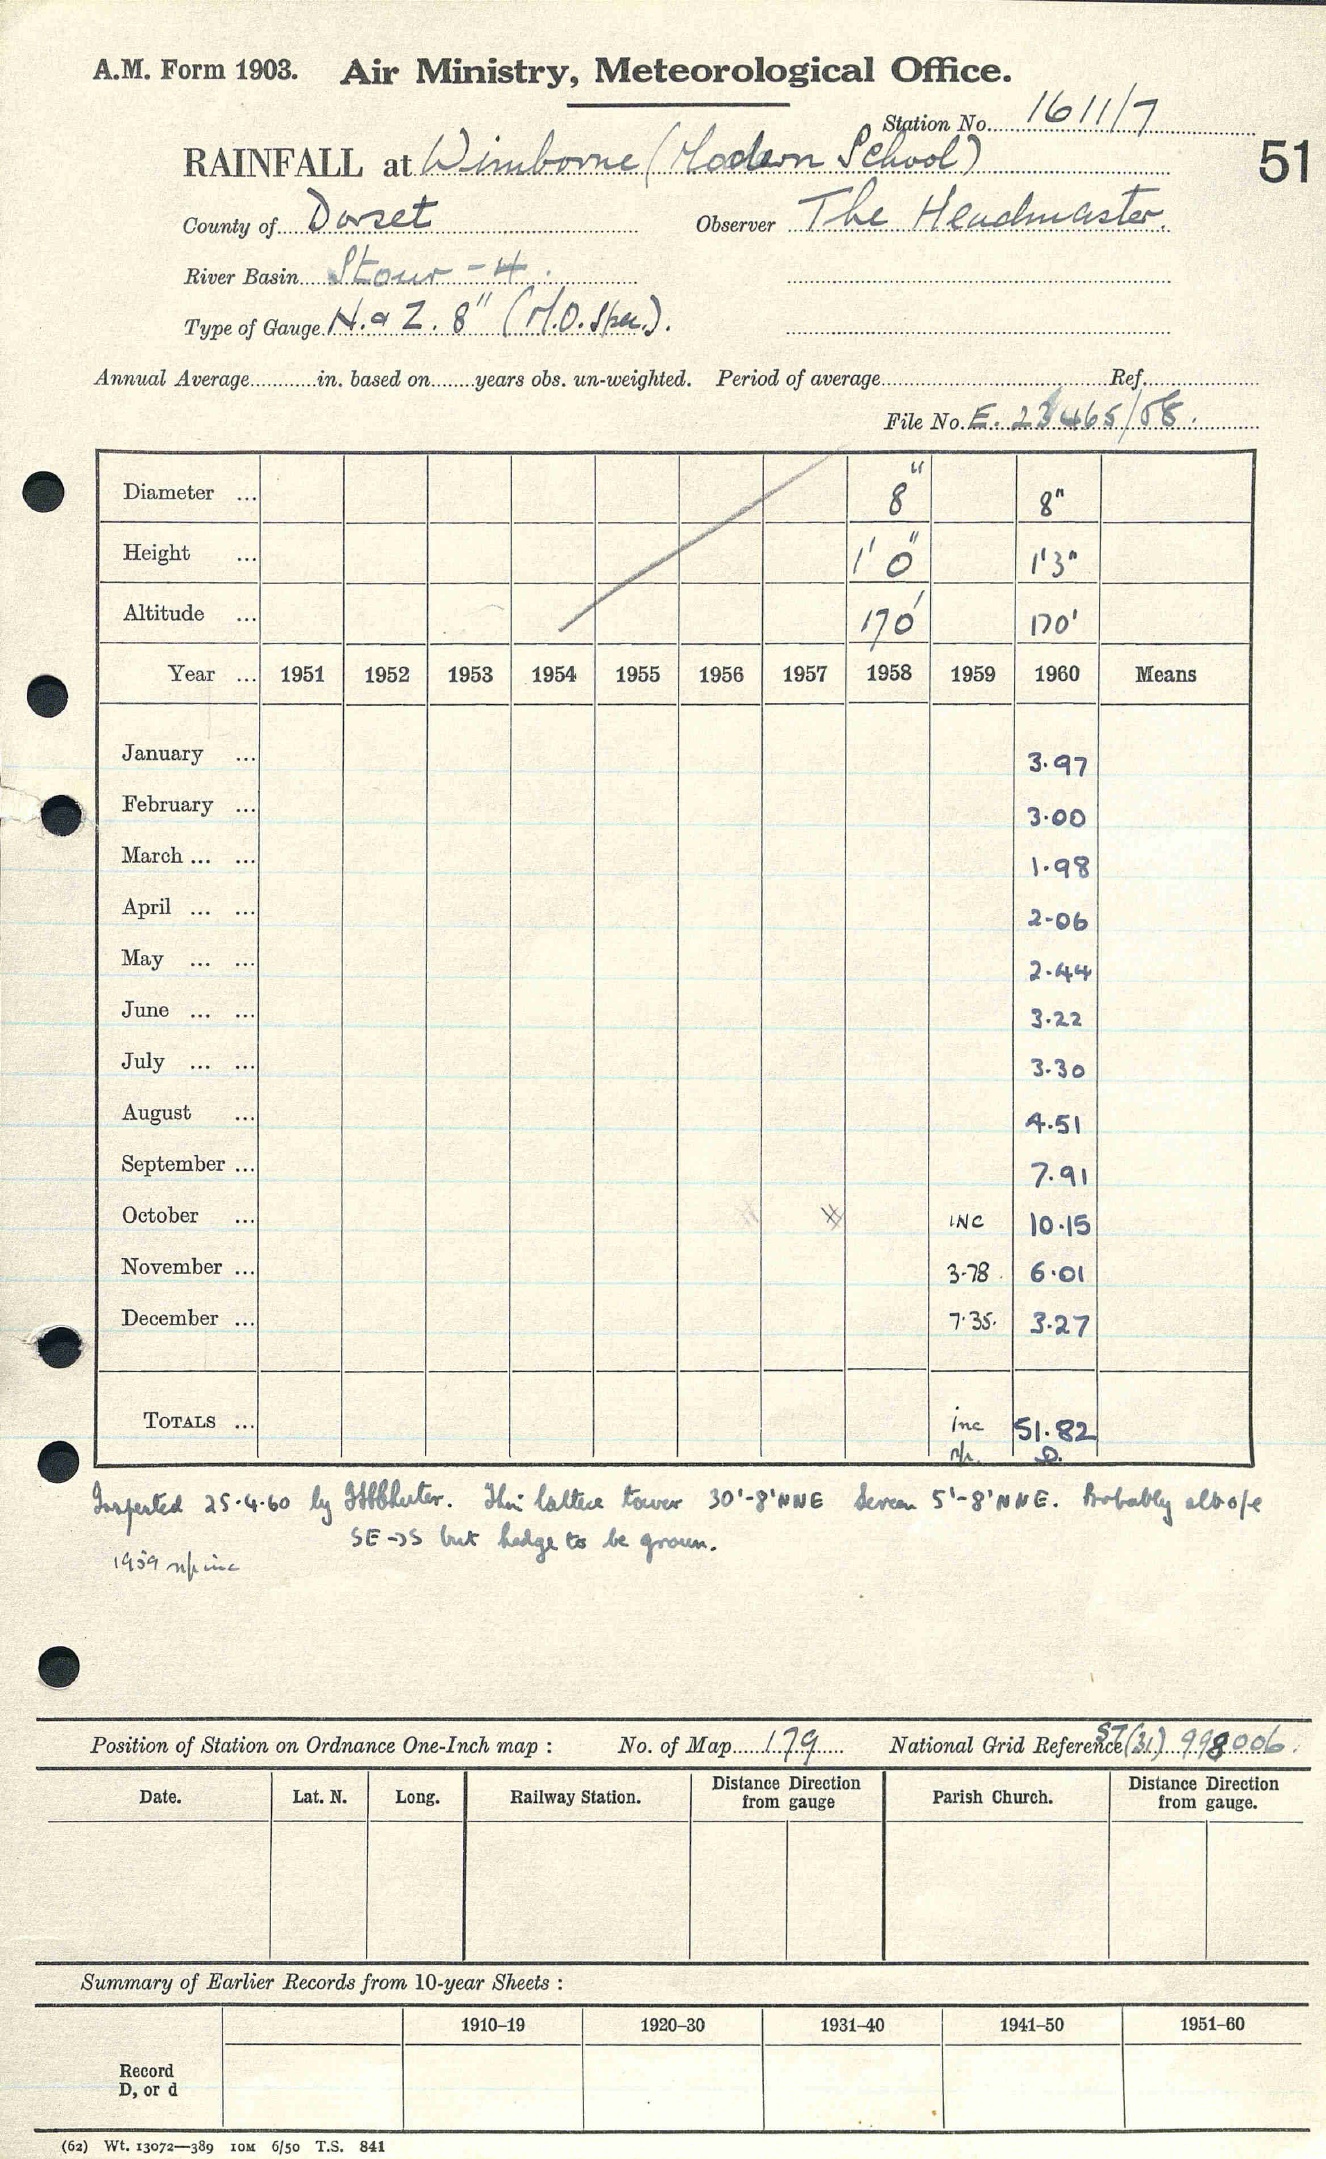 A.M. Form 1903. Air Ministry, Meteorological Office.
Station No. 1611/7
RAINFALL at Wimborne (Modern School)
51
County of Dorset Observer The Headmaster.
River Basin Stour - 4.
Type of Gauge N. & Z. 8" (M.O. Spec.).
Annual Average in. based on years obs. un-weighted. Period of average Ref.
File No. E. 23465/58.
Diameter ... 8" 8"
Height ... 1' 0" 1'3"
Altitude ... 170' 170'
Year ... 1951 1952 1953 1954 1955 1956 1957 1958 1959 1960 Means
January ... 3.97
February ... 3.00
March ... ... 1.98
April ... ... 2.06
May ... ... 2.44
June ... ... 3.22
July ... ... 3.30
August ... 4.51
September ... 7.91
October ... INC 10.15
November ... 3.78 6.01
December ... 7.35. 3.27
TOTALS ... inc 51.82
n/p. D.
Inspected 25.4.60 by Thin lattice tower 30'-8' NNE Screen 5'-8' NNE. Probably
SE→S but hedge to be grown.
1959 n/p inc
Position of Station on Ordnance One-Inch map : No. of Map 179 National Grid Reference ST(31) 998006.
Date. Lat. N. Long. Railway Station. Distance Direction from gauge Parish Church. Distance Direction from gauge.
Summary of Earlier Records from 10-year Sheets :
1910–19 1920–30 1931–40 1941–50 1951–60
Record
D, or d
(62) Wt. 13072—389 10M 6/50 T.S. 841